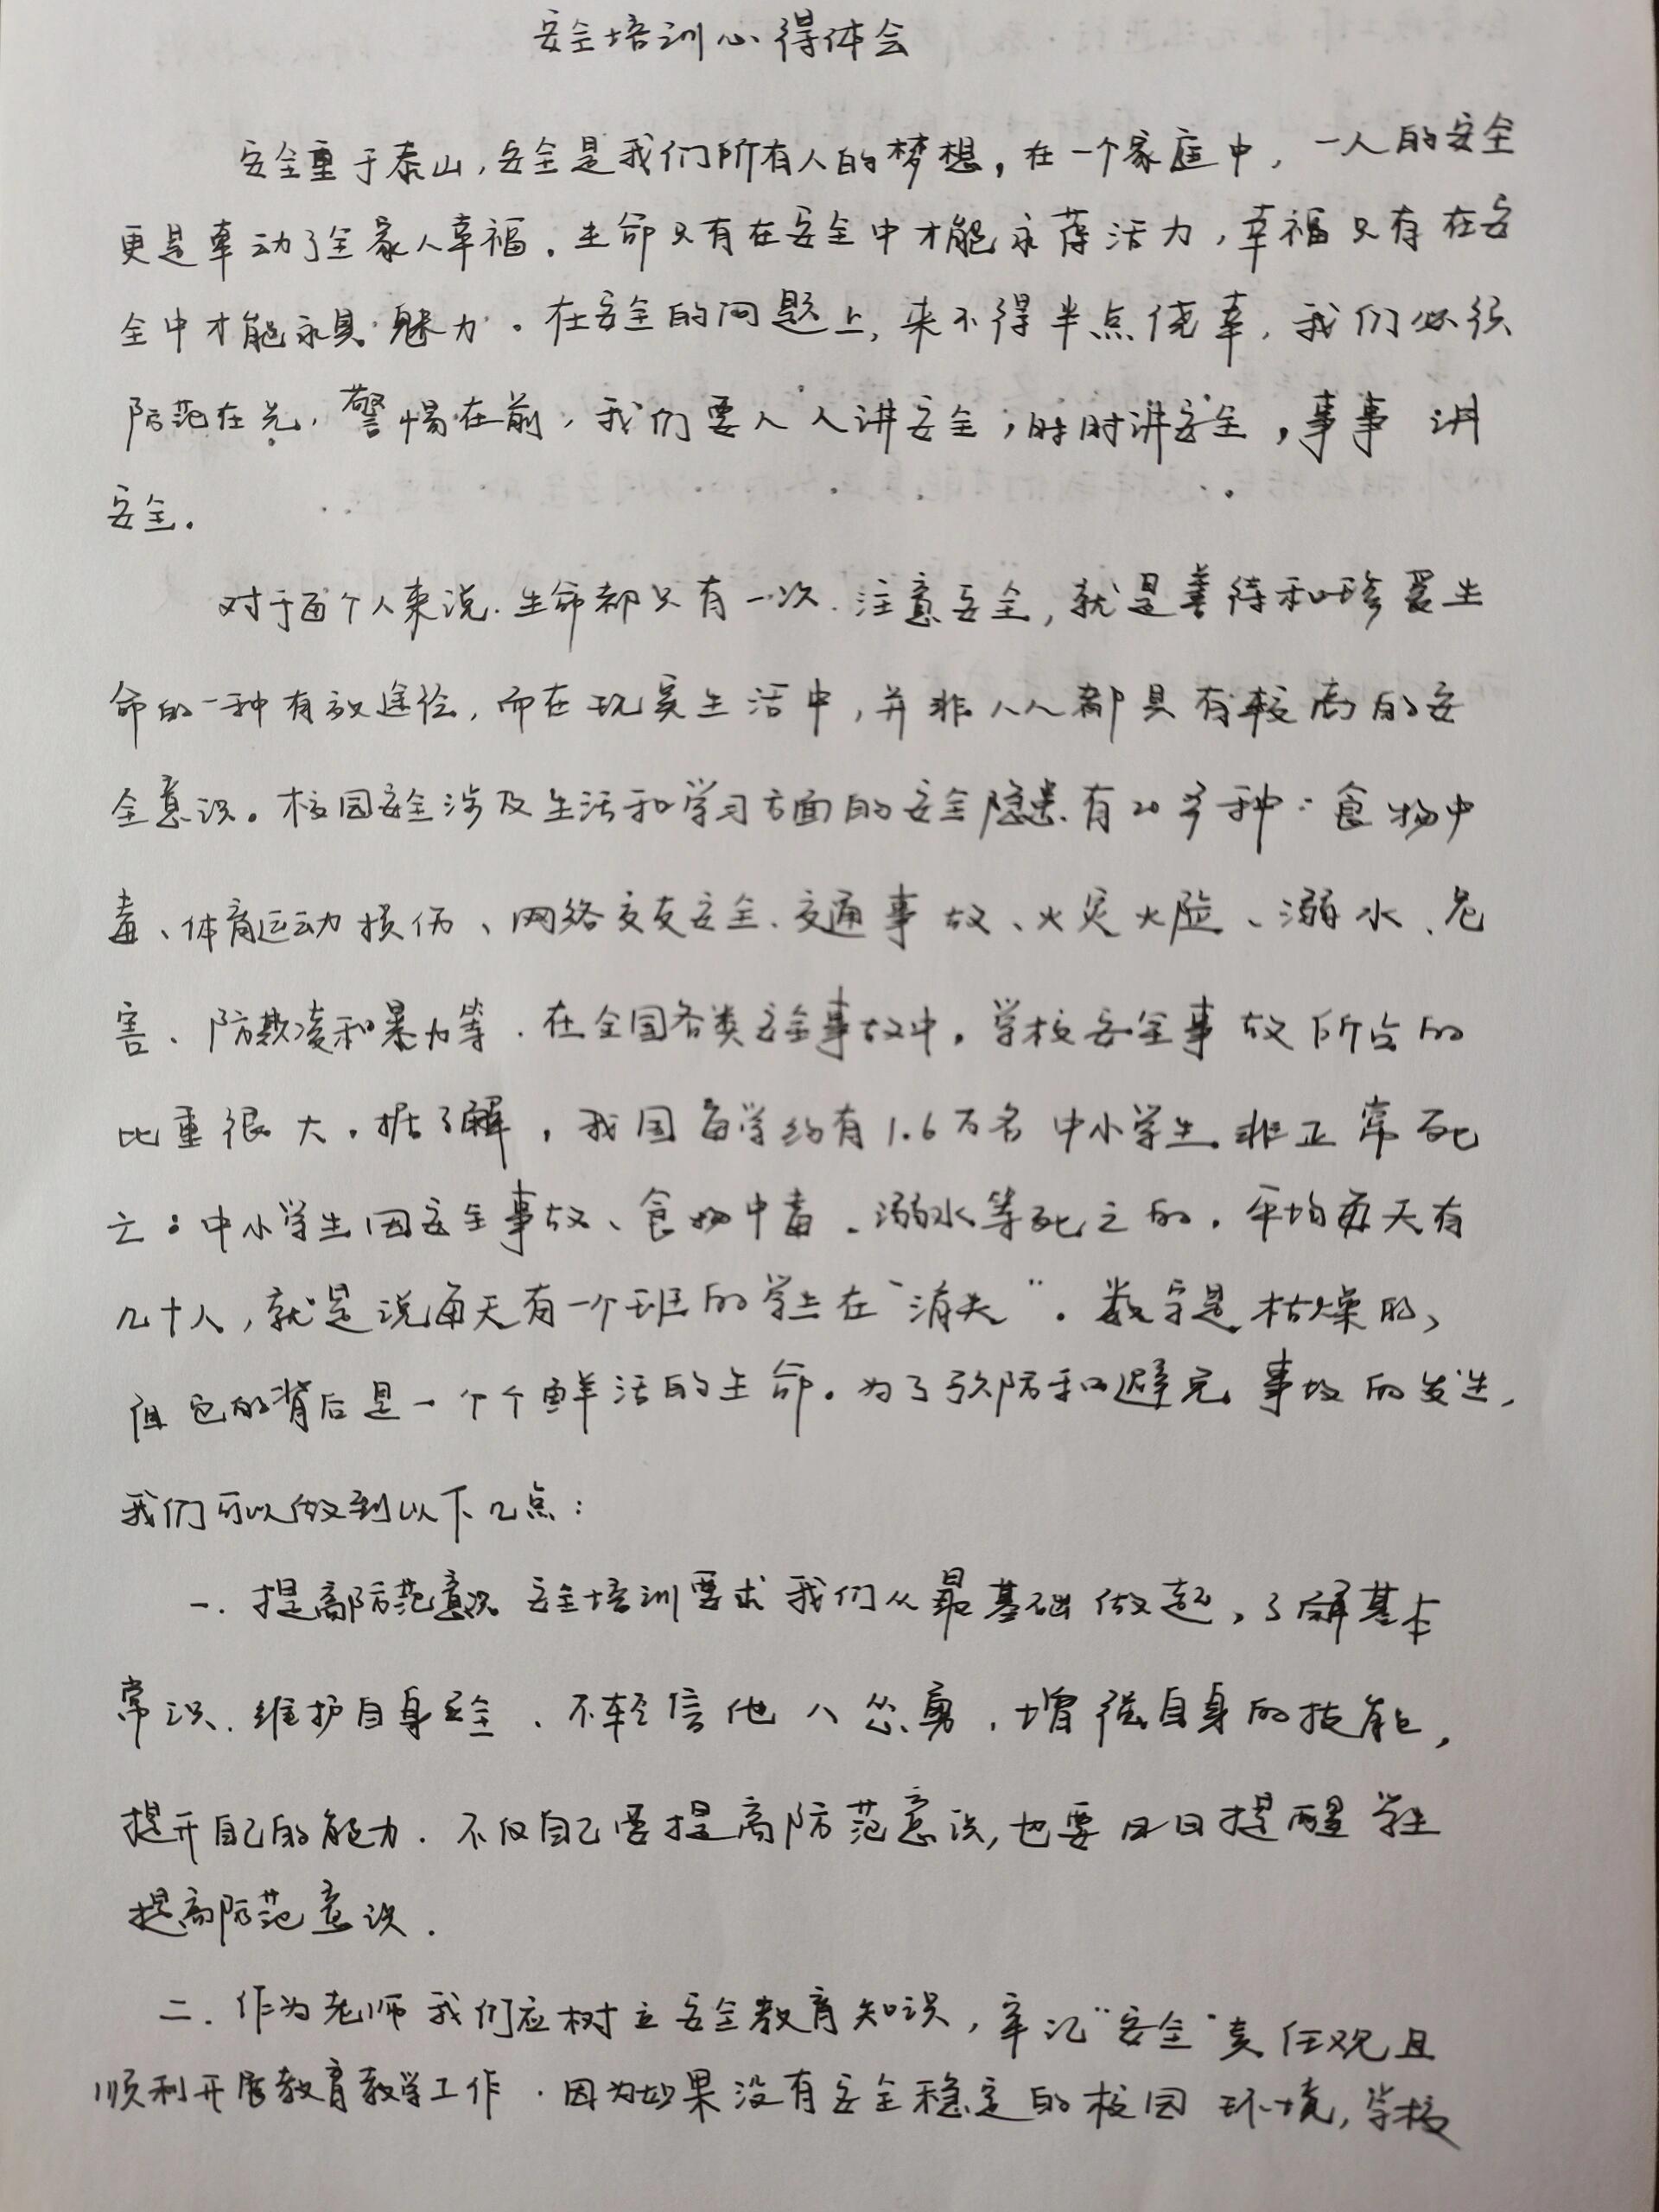 安全培训心得体会
安全重于泰山,安全是我们所有人的梦想,在一个家庭中,一人的安全
更是牵动了全家人幸福.生命只有在安全中才能永葆活力,幸福只有在安
全中才能永具魅力.在安全的问题上,来不得半点侥幸,我们必须
防范在先,警惕在前,我们要人人讲安全,时时讲安全,事事讲
安全.
对于每个人来说.生命都只有一次.注意安全,就是善待和珍爱生
命的一种有效途径,而在现实生活中,并非人人都具有较高的安
全意识。校园安全涉及生活和学习方面的安全隐患有20多种:食物中
毒、体育运动损伤、网络交友安全、交通事故、火灾火险、溺水、危
害、防欺凌和暴力等.在全国各类安全事故中,学校安全事故所占的
比重很大.据了解,我国每学约有1.6万名中小学生非正常死
亡:中小学生因安全事故、食物中毒、溺水等死亡的,平均每天有
几十人,就是说每天有一个班的学生在"消失".数字是枯燥的,
但它的背后是一个个鲜活的生命.为了预防和避免事故的发生,
我们可以做到以下几点:
一.提高防范意识 安全培训要求我们从最基础做起,了解基本
常识.维护自身安全、不轻信他人怂恿,增强自身的技能,
提升自己的能力.不仅自己要提高防范意识,也要日日提醒学生
提高防范意识.
二.作为老师我们应树立安全教育知识,牢记"安全"责任观且
顺利开展教育教学工作.因为如果没有安全稳定的校园环境,学校